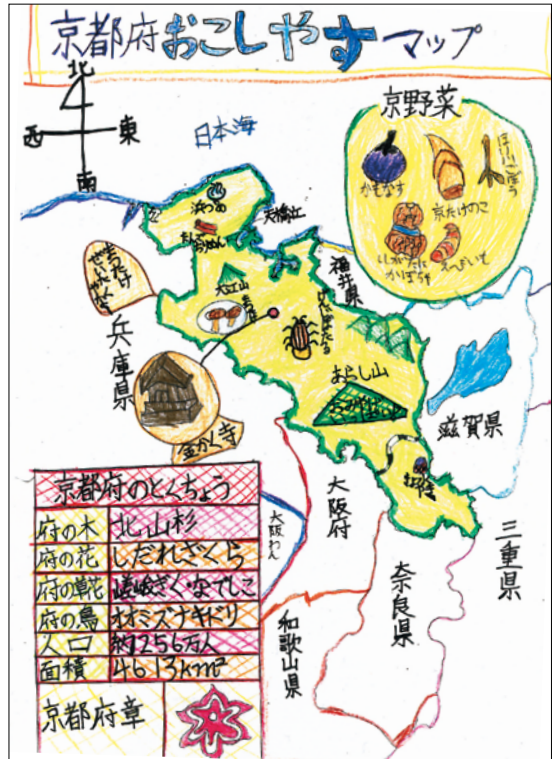 京都府おこしやすマップ
北
西 東
南
日本海
京野菜
かもなす
京たけのこ
ほりかわごぼう
ししがたに
かぼちゃ
えびいも
天橋立
大江山
福井県
げんじぼたる
兵庫県
あらし山
滋賀県
金かく寺
大阪府
大阪わん
三重県
奈良県
和歌山県
京都府のとくちょう
府の木 北山杉
府の花 しだれざくら
府の草花 嵯峨ぎく・なでしこ
府の鳥 オオミズナキドリ
人口 約256万人
面積 4613km²
京都府章